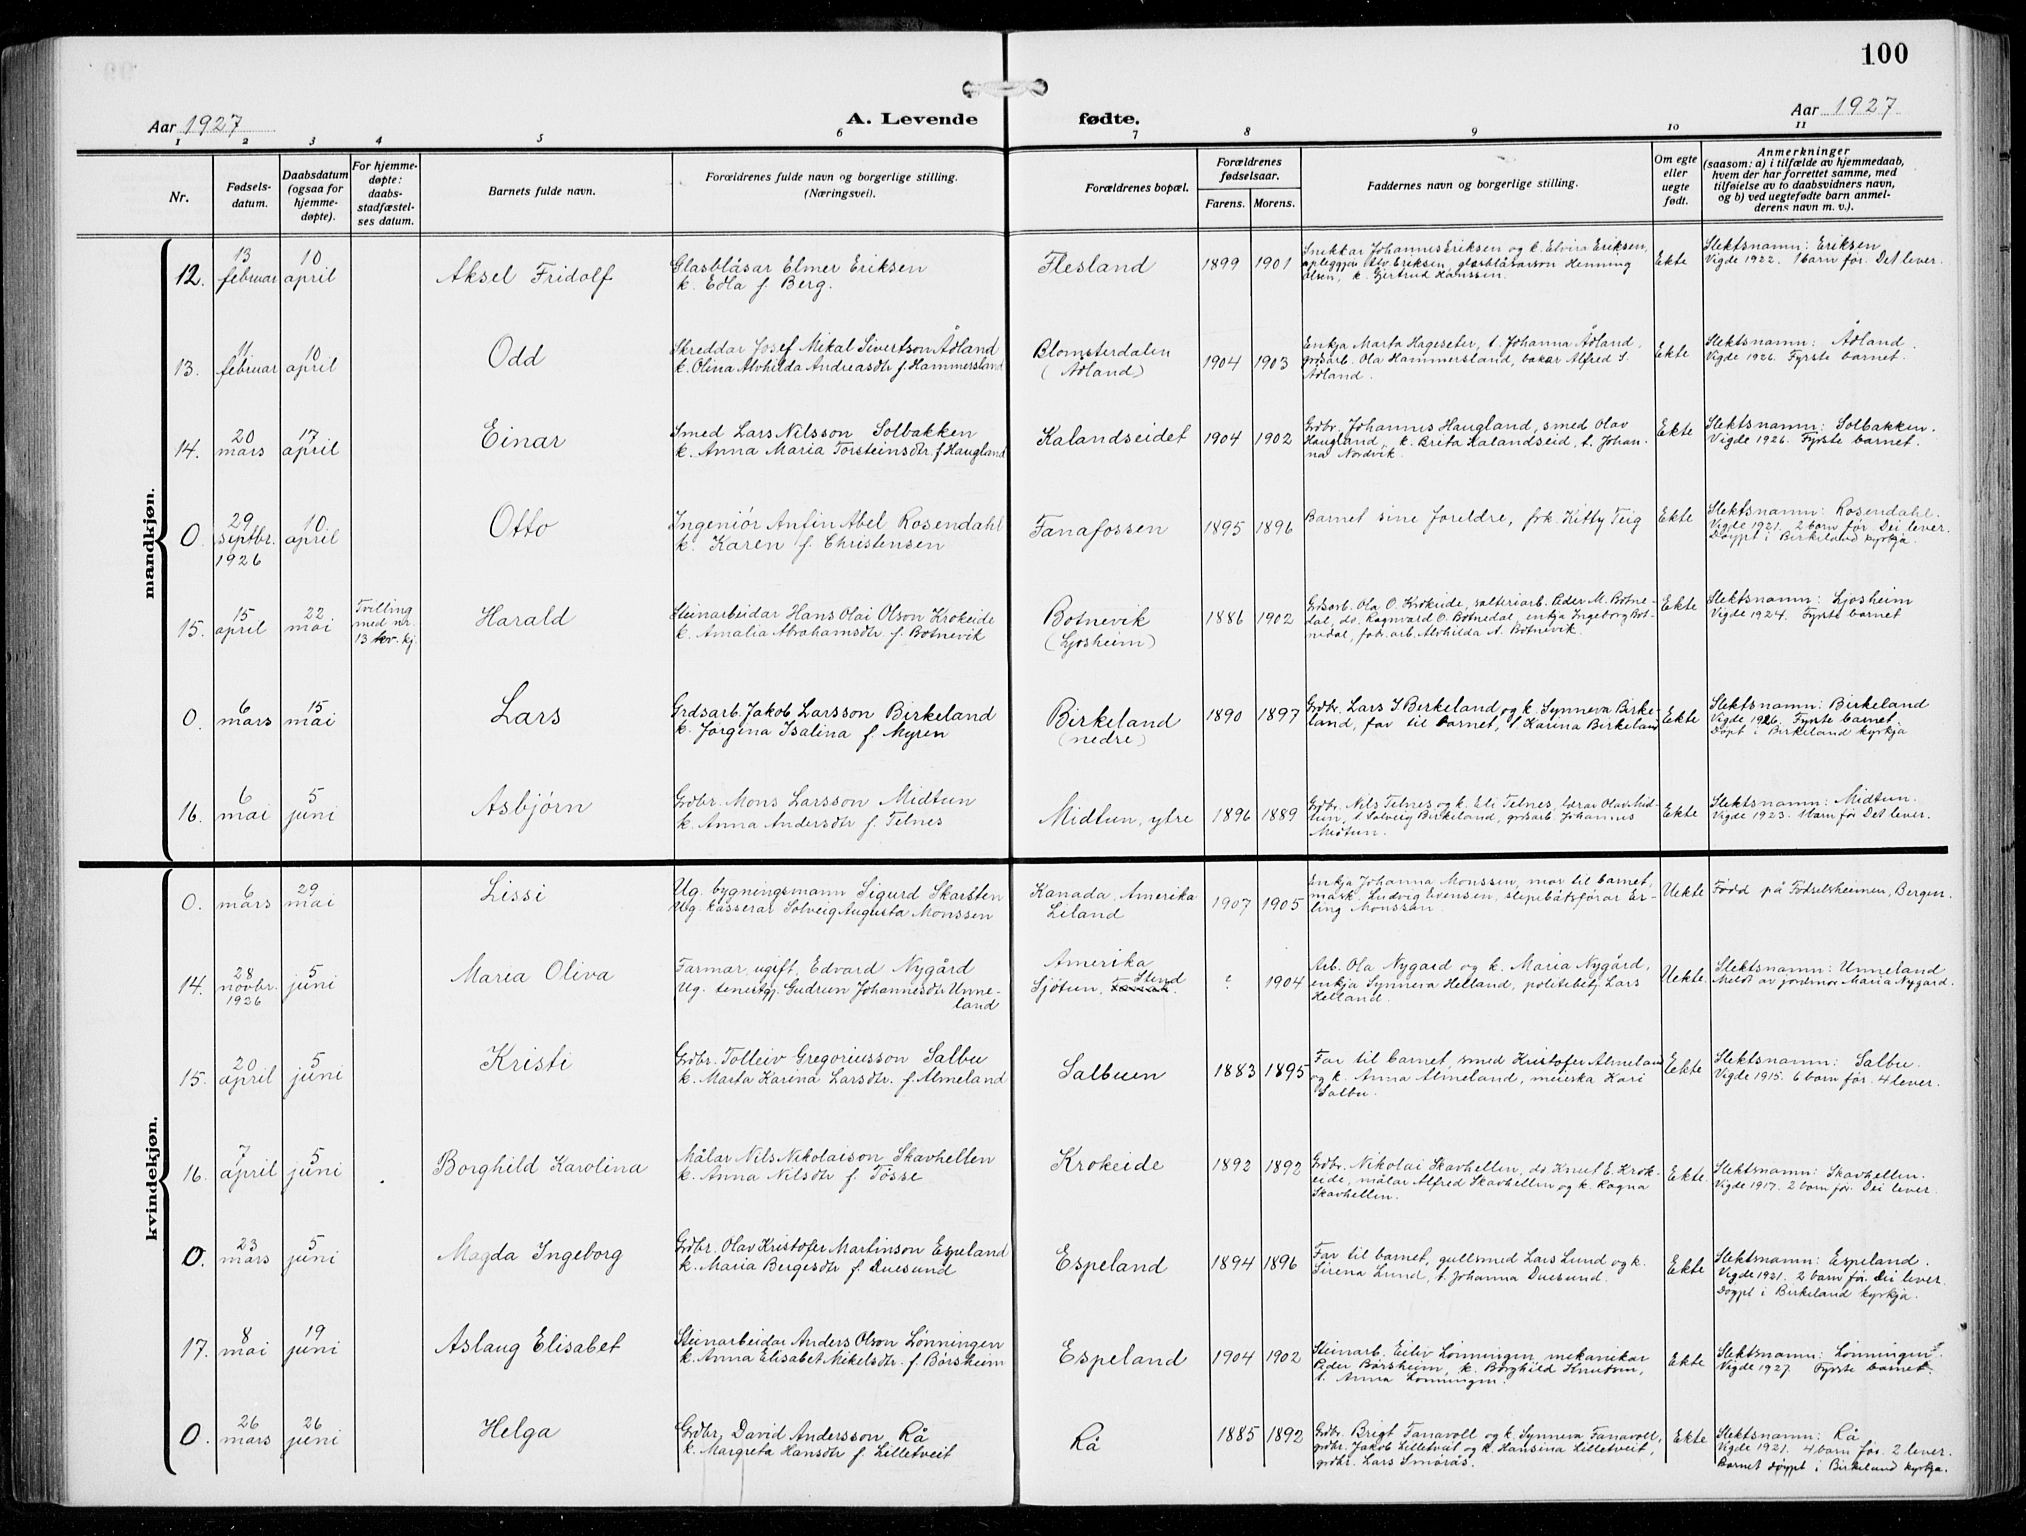 100
Aar 1927
A. Levende fødte.
Aar 1927
1 2 3 4 5 6 7 8 9 10 11
Nr.
Fødsels-
datum.
Daabsdatum
(ogsaa for
hjemme-
døpte).
For hjemme-
døpte:
daabs-
stadfæstel-
ses datum.
Barnets fulde navn.
Forældrenes fulde navn og borgerlige stilling.
(Næringsvei).
Forældrenes bopæl.
Forældrenes
fødselsaar.
Farens. Morens.
Faddernes navn og borgerlige stilling.
Om egte
eller
uegte
født.
Anmerkninger
(saasom: a) i tilfælde av hjemmedaab,
hvem der har forrettet samme, med
tilføielse av to daabsvidners navn,
og b) ved uegtefødte barn anmel-
derens navn m. v.).
mandkjøn.
12.
13
februar
10
april
Aksel Fridolf
Glasblåsar Elmer Eriksen
k. Edla f. Berg.
Flesland
1899 1901
Snikkar Johannes Eriksen og k. Elvira Eriksen,
Eriksen, glasblåsarson Henning
Olsen, k. Gjertrud Hanssen.
Ekte
Slektsnamn: Eriksen
Vigde 1922. 1 barn før. Det lever.
13.
11
februar
10
april
Odd
Skreddar Josef Mikal Sivertson Ådland
k. Olina Alvhilda Andreasdtr f. Hammersland
Blomsterdalen
(Ådland)
1904 1903
Enkja Marta Hageseter, t. Johanna Ådland,
grdsarb. Ola Hammersland, bakar Alfred S.
Ådland.
Ekte
Slektsnamn: Ådland.
Vigde 1926. Fyrste barnet.
14.
20
mars
17
april
Einar
Smed Lars Nilsson Solbakken
k. Anna Maria Torsteinsdtr. f. Haugland
Kalandseidet
1904 1902
Grdbr. Johannes Haugland, smed Olav
Haugland, k. Brita Kalandseid, t. Johan-
na Nordvik.
Ekte
Slektsnamn: Solbakken.
Vigde 1926. Fyrste barnet.
0.
29
septbr.
1926
10
april
Otto
Ingeniør Anfin Abel Rosendahl
k. Karen f. Christensen
Fanafossen
1895 1896
Barnet sine foreldre, frk. Kitty Teig
Ekte
Slektsnamn: Rosendahl.
Vigde 1921. 2 born før. Dei lever.
Døypt i Birkeland kyrkja.
15.
15
april
22
mai
Tvilling
med nr.
13 kv. kj.
Harald
Steinarbeidar Hans Olai Olson Krokeide
k. Amalia Abrahamsdtr. f. Botnevik
Botnevik
(Ljosheim)
1886 1902
Grdsarb. Ola O. Krokeide, salteriarb. Peder M. Botne-
dal, do. Ragnvald O. Botnedal, enkja Ingeborg Bot-
nedal, fabr. arb. Alvhilda A. Botnevik.
Ekte
Slektsnamn: Ljosheim
Vigde 1924. Fyrste barnet
0.
6
mars
15
mai
Lars
Grdsarb. Jakob Larsson Birkeland
k. Jørgina Isalina f. Myren
Birkeland
(nedre)
1890 1897
Grdbr. Lars I Birkeland og k. Synneva Birke-
land, far til barnet, t. Karina Birkeland
Ekte
Slektsnamn: Birkeland
Vigde 1926. Fyrste barnet.
Døpt i Birkeland kyrkja
16.
6
mai
5
juni
Asbjørn
Grdbr. Mons Larsson Midtun
k. Anna Andersdtr f. Telnes
Midtun, ytre
1896 1889
Grdbr. Nils Telnes og k. Eli Telnes, lærar Olav Mid-
tun, t. Solveig Birkeland, grdsarb. Johannes
Midtun.
Ekte
Slektsnamn: Midtun.
Vigde 1923. 1 barn før Det lever.
kvindekjøn.
0.
6
mars
29
mai
Lissi
Ug. bygningsmann Sigurd Skarsten
Ug. kasserar Solveig Augusta Monssen
Kanada, Amerika
Liland
1907 1905
Enkja Johanna Monssen, mor til barnet,
mask. Ludvig Evensen, slepebåtsførar Er-
ling Monssen.
Uekte
Född på Fødselsheimen, Bergen.
14.
28
novbr.
1926
5
juni
Maria Oliva
Farmar, ugift, Edvard Nygård
Ug. tenestgj. Gudrun Johannesdtr Unne-
land
Amerika
Sjøtun, Stend
? 1904
Arb. Ola Nygard og k. Maria Nygård,
enkja Synneva Helland, politibetj. Lars
Helland.
Uekte
Slektsnamn: Unneland
Meldt av jordmor Maria Nygard.
15.
20
april
5
juni
Kristi
Grdbr. Tolleiv Gregoriusson Salbu
k. Marta Karina Larsdtr. f. Almeland
Salbuen
1883 1895
Far til barnet, smed Kristofer Almeland
og k. Anna Almeland, meierska Kari
Salbu.
Ekte
Slektsnamn: Salbu.
Vigde 1915. 6 born før. 4 lever.
16.
7
april
5
juni
Borghild Karolina
Målar Nils Nikolaison Skavhellen
k. Anna Nilsdtr f. Tøsse
Krokeide
1892 1892
Grdbr. Nikolai Skavhellen, do Knut E. Krok-
eide, målar Alfred Skavhellen og k. Ragna
Skavhellen.
Ekte.
Slektsnamn: Skavhellen.
Vigde 1917. 2 born før. Dei lever.
0.
23
mars
5
juni
Magda Ingeborg
Grdbr. Olav Kristofer Martinson Espeland
k. Maria Bergesdtr f. Duesund
Espeland
1894 1896
Far til barnet, gullsmed Lars Lund og k.
Sirena Lund, t. Johanna Duesund.
Ekte
Slektsnamn: Espeland.
Vigde 1921. 2 born før. Dei lever.
Døypt i Birkeland kyrkja.
17.
8
mai
19
juni
Aslaug Elisabet
Steinarbeidar Anders Olson Lønningen
k. Anna Elisabet Mikelsdtr. f. Børsheim
Espeland
1904 1902
Steinarb. Eiliv Lønningen, mekanikar
Peder Børsheim, k. Borghild Knutsen,
t. Anna Lønningen.
Ekte
Slektsnamn: Lønningen.
Vigde 1927. Fyrste barnet.
0.
26
mars
26
juni
Helga
Grdbr. David Andersson Rå
k. Margreta Hansdtr f. Lilletveit
Rå
1885 1892
Grdbr. Brigt Fanavoll og k. Synneva Fanavoll,
grdbr. Jakob Lilletveit og k. Hansina Lilletveit,
grdbr. Lars Smørås.
Ekte
Slektsnamn: Rå
Vigde 1921. 4 born før. 2 lever.
Barnet døypt i Birkeland kyrkja.